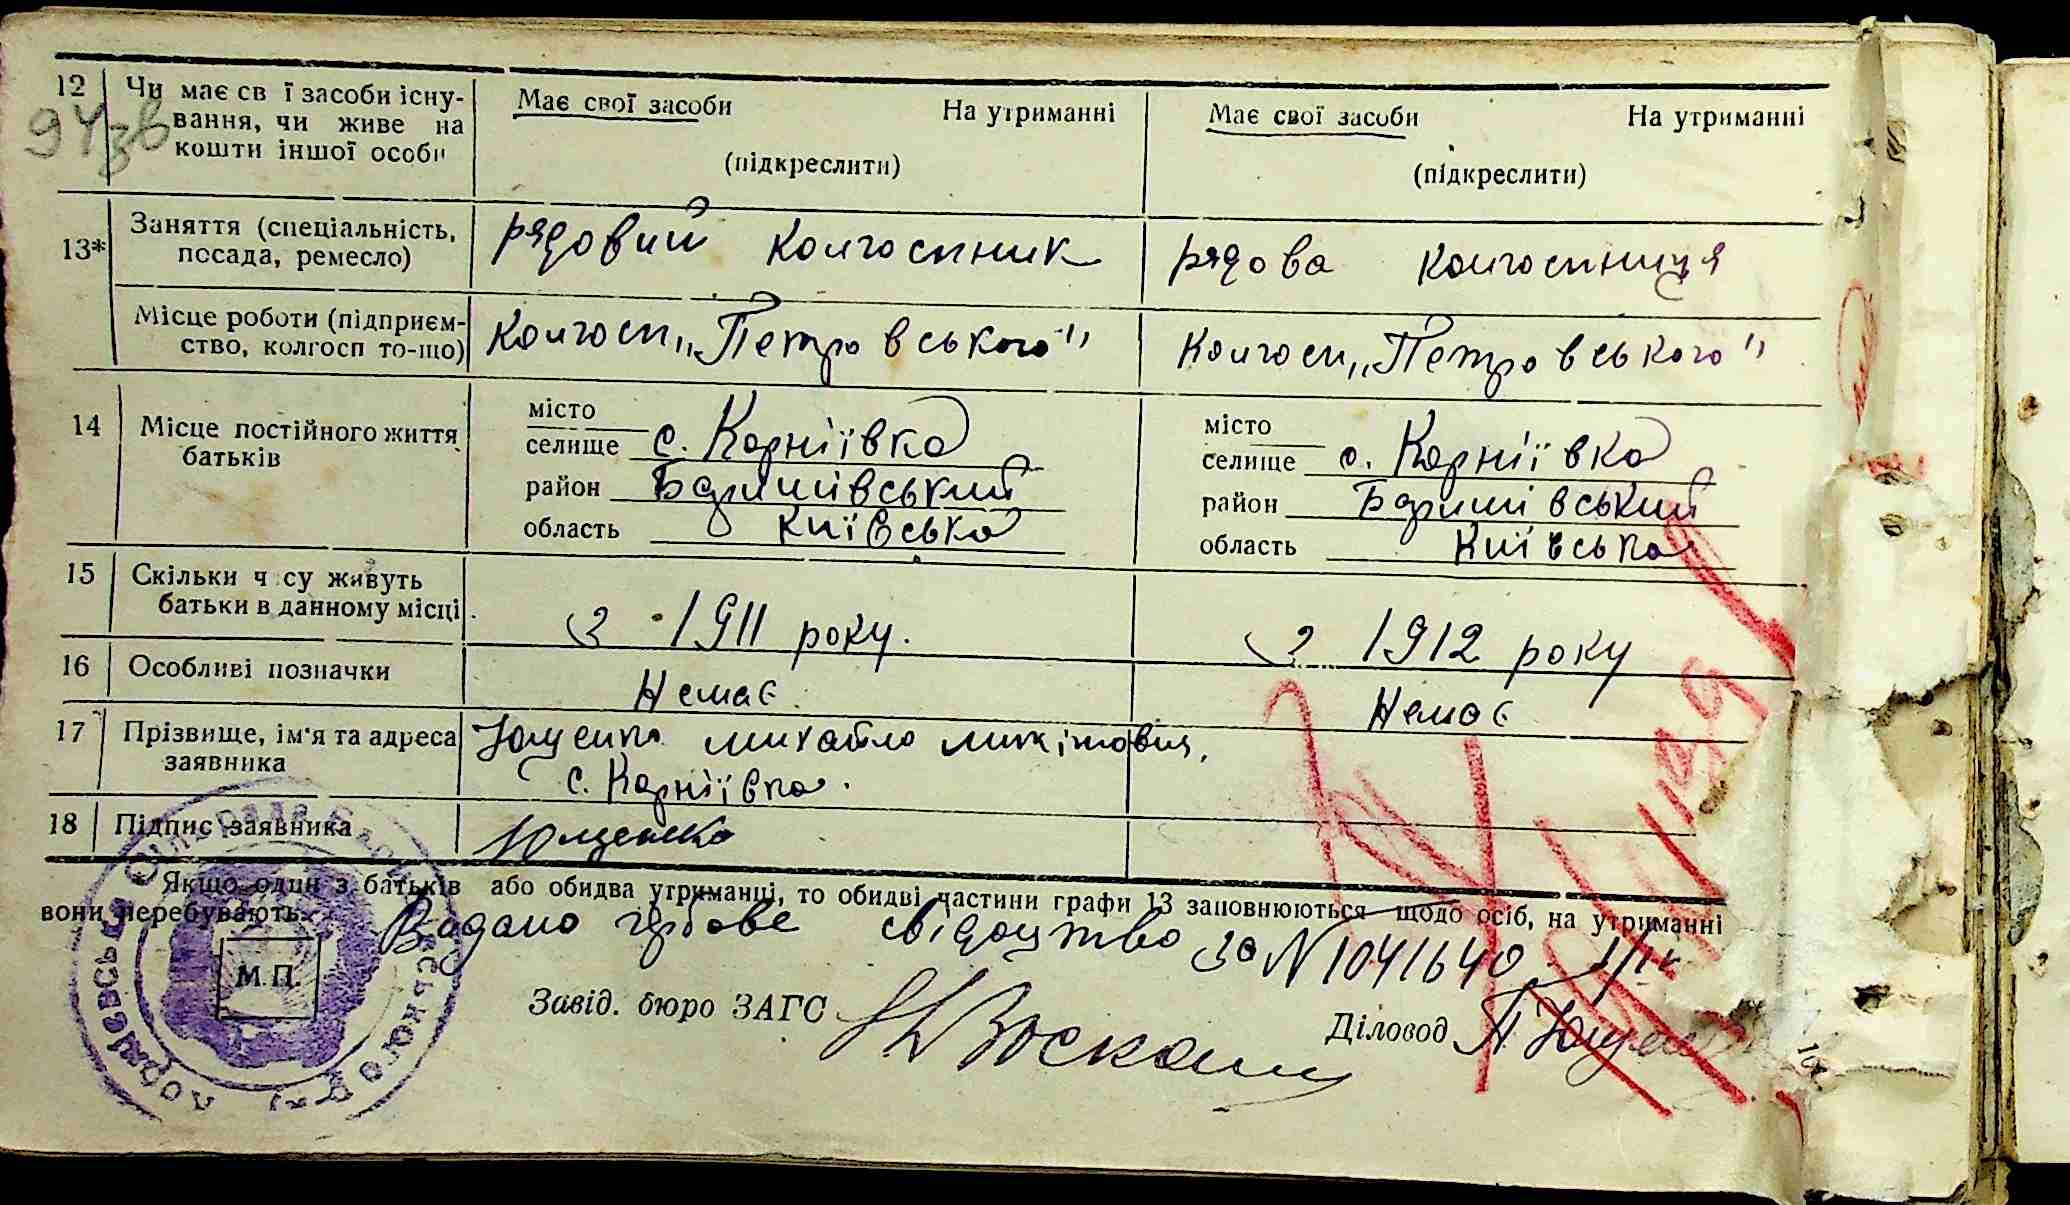 12 Чи має св ї засоби існу-
вання, чи живе на
кошти іншої особи
Має свої засоби На утриманні
(підкреслити)
Має свої засоби На утриманні
(підкреслити)
94зв
13* Заняття (спеціальність,
посада, ремесло)
рядовий колгоспник
рядова колгоспниця
Місце роботи (підприєм-
ство, колгосп то-що)
Колгосп „Петровського"
Колгосп „Петровського"
14 Місце постійного життя
батьків
місто
селище с. Корніївка
район Баришівський
область Київська
місто
селище с. Корніївка
район Баришівський
область Київська
15 Скільки ч су живуть
батьки в данному місці
з 1911 року.
з 1912 року
16 Особливі позначки
Немає
Немає
17 Прізвище, ім'я та адреса
заявника
Ющенко михайло микітович,
с. Корніївка.
18 Підпис заявника
Ющенко
* Якщо один з батьків або обидва утриманці, то обидві частини графи 13 заповнюються щодо осіб, на утриманні
вони перебувають.
Видано гербове свідоцтво за N 1041640
М.П.
Завід. бюро ЗАГС
Діловод